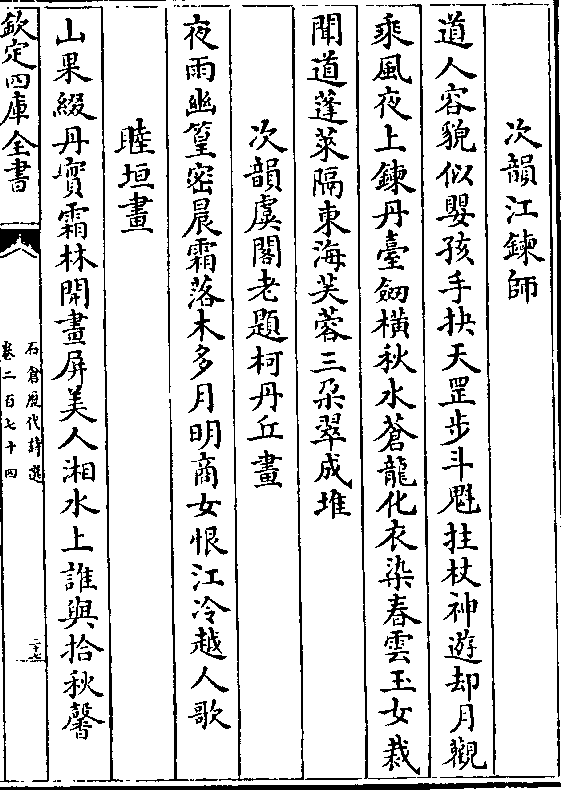 次韻江鍊師
道人容貌似嬰孩手抉天罡步斗魁拄杖神遊却月觀
乘風夜上鍊丹臺劒橫秋水蒼龍化衣染春雲玉女裁
聞道蓬萊隔東海芙蓉三朶翠成堆
次韻虞閣老題柯丹丘畫
夜雨幽篁密晨霜落木多月明商女恨江冷越人歌
睦垣畫
山果綴丹實霜林開畫屏美人湘水上誰與拾秋馨
欽定四庫全書
石倉歷代詩選
卷二百七十四